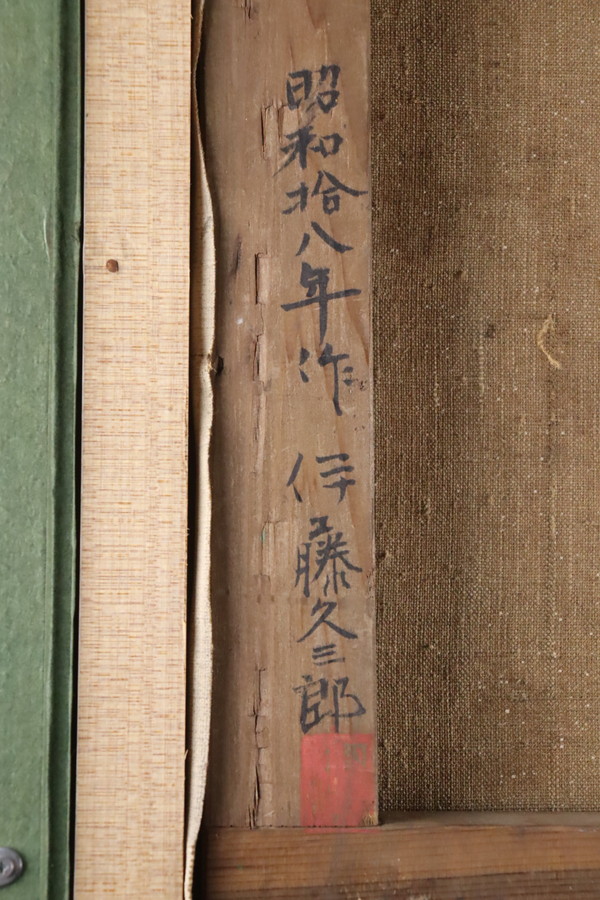 昭和拾八年作 伊藤久三郎